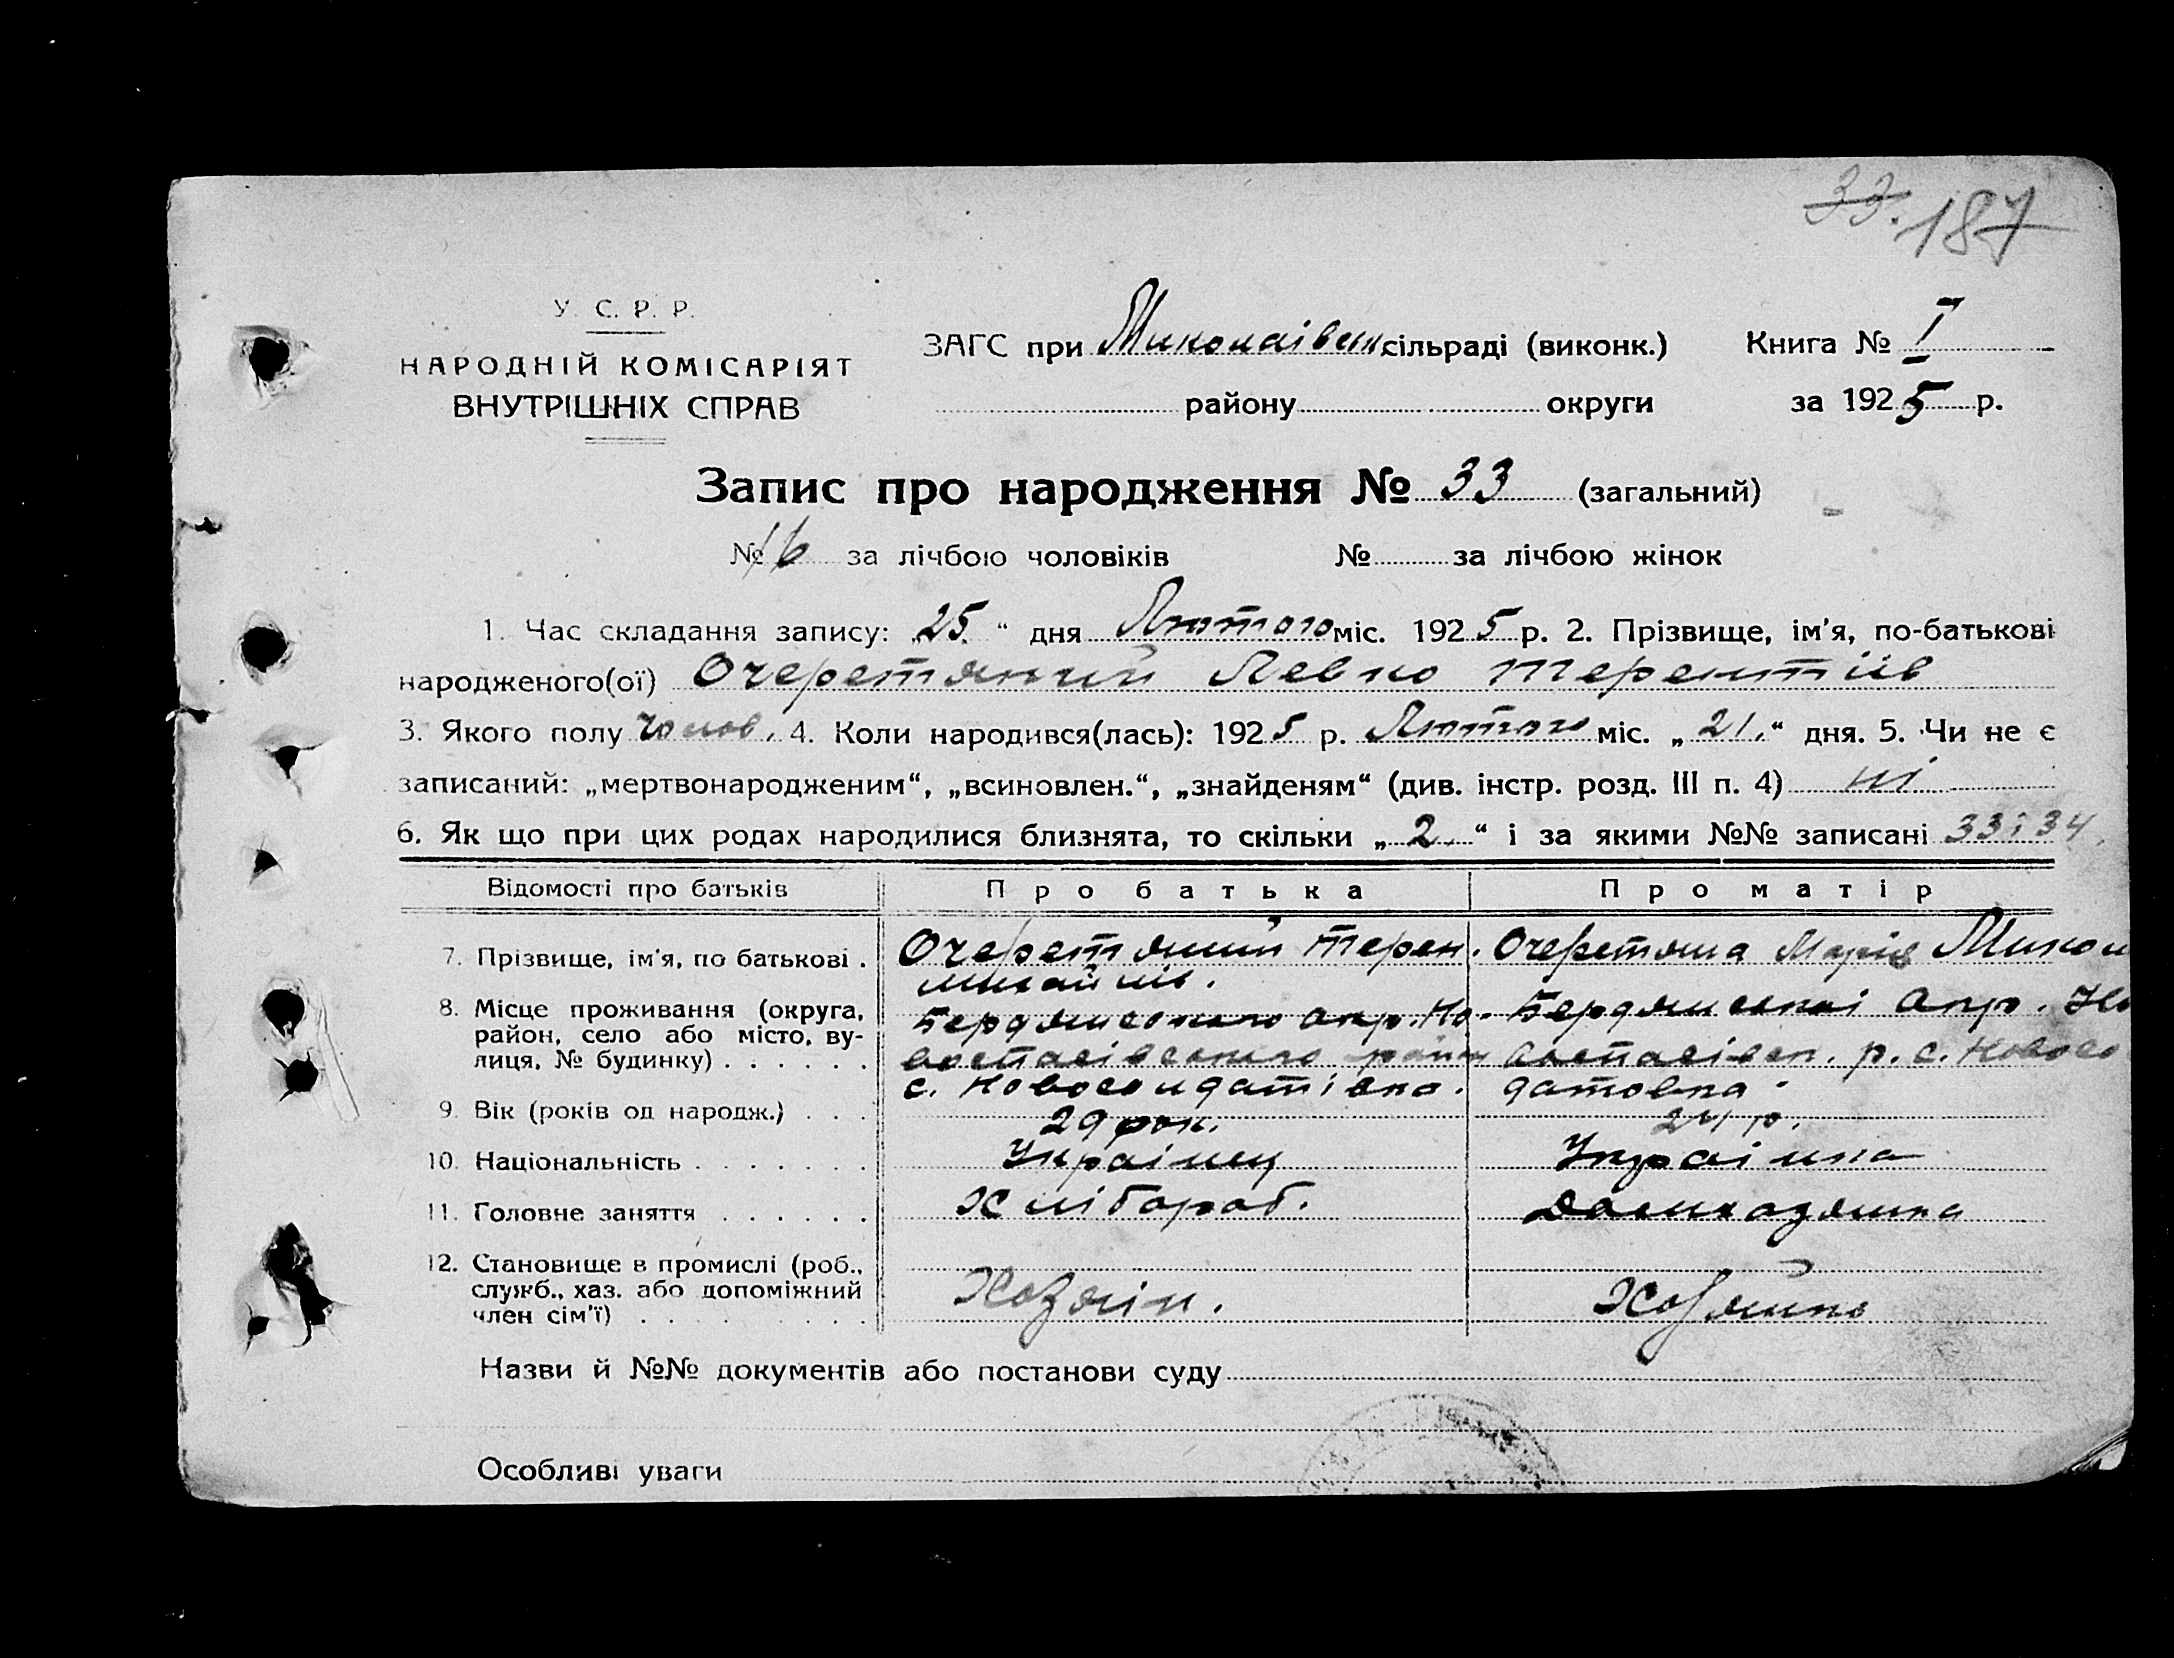 33. 187
У. С. Р. Р.
НАРОДНІЙ КОМІСАРІЯТ
ВНУТРІШНІХ СПРАВ
ЗАГС при Миколаівськ сільраді (виконк.) Книга № I
району округи за 1925 р.
Запис про народження № 33 (загальний)
№ 16 за лічбою чоловіків № за лічбою жінок
1. Час складання запису: „25.“ дня Лютого міс. 1925 р. 2. Прізвище, ім'я, по-батькові
народженого(ої) Очеретяний Левко Терентіїв
3. Якого полу Чолов. 4. Коли народився(лась): 1925 р. Лютого міс. „21.“ дня. 5. Чи не є
записаний: „мертвонародженим“, „всиновлен.“, „знайденям“ (див. інстр. розд. III п. 4) ні
6. Як що при цих родах народилися близнята, то скільки „2.“ і за якими №№ записані 33 і 34.
Відомості про батьків Про батька Про матір
7. Прізвище, ім'я, по батькові . Очеретяний Терен. Очеретяна Марія Микол
Михайлів.
8. Місце проживання (округа, Бердянського Окр. Но- Бердянськоі Окр. Но
район, село або місто, ву- воспасівського район воспасівск. р. с. Новосо
лиця, № будинку) . . . . . . с. Новосолдатівка. датовка.
9. Вік (років од народж.) . . . 29 рок. 24 р.
10. Національність . . . . . . . Украінец Украінка
11. Головне заняття . . . . . . Хлібороб. Домхозяйка
12. Становище в промислі (роб.,
служб., хаз. або допоміжний Хозяін. Хозяйка
член сім'ї) . . . . . . . . .
Назви й №№ документів або постанови суду
Особливі уваги